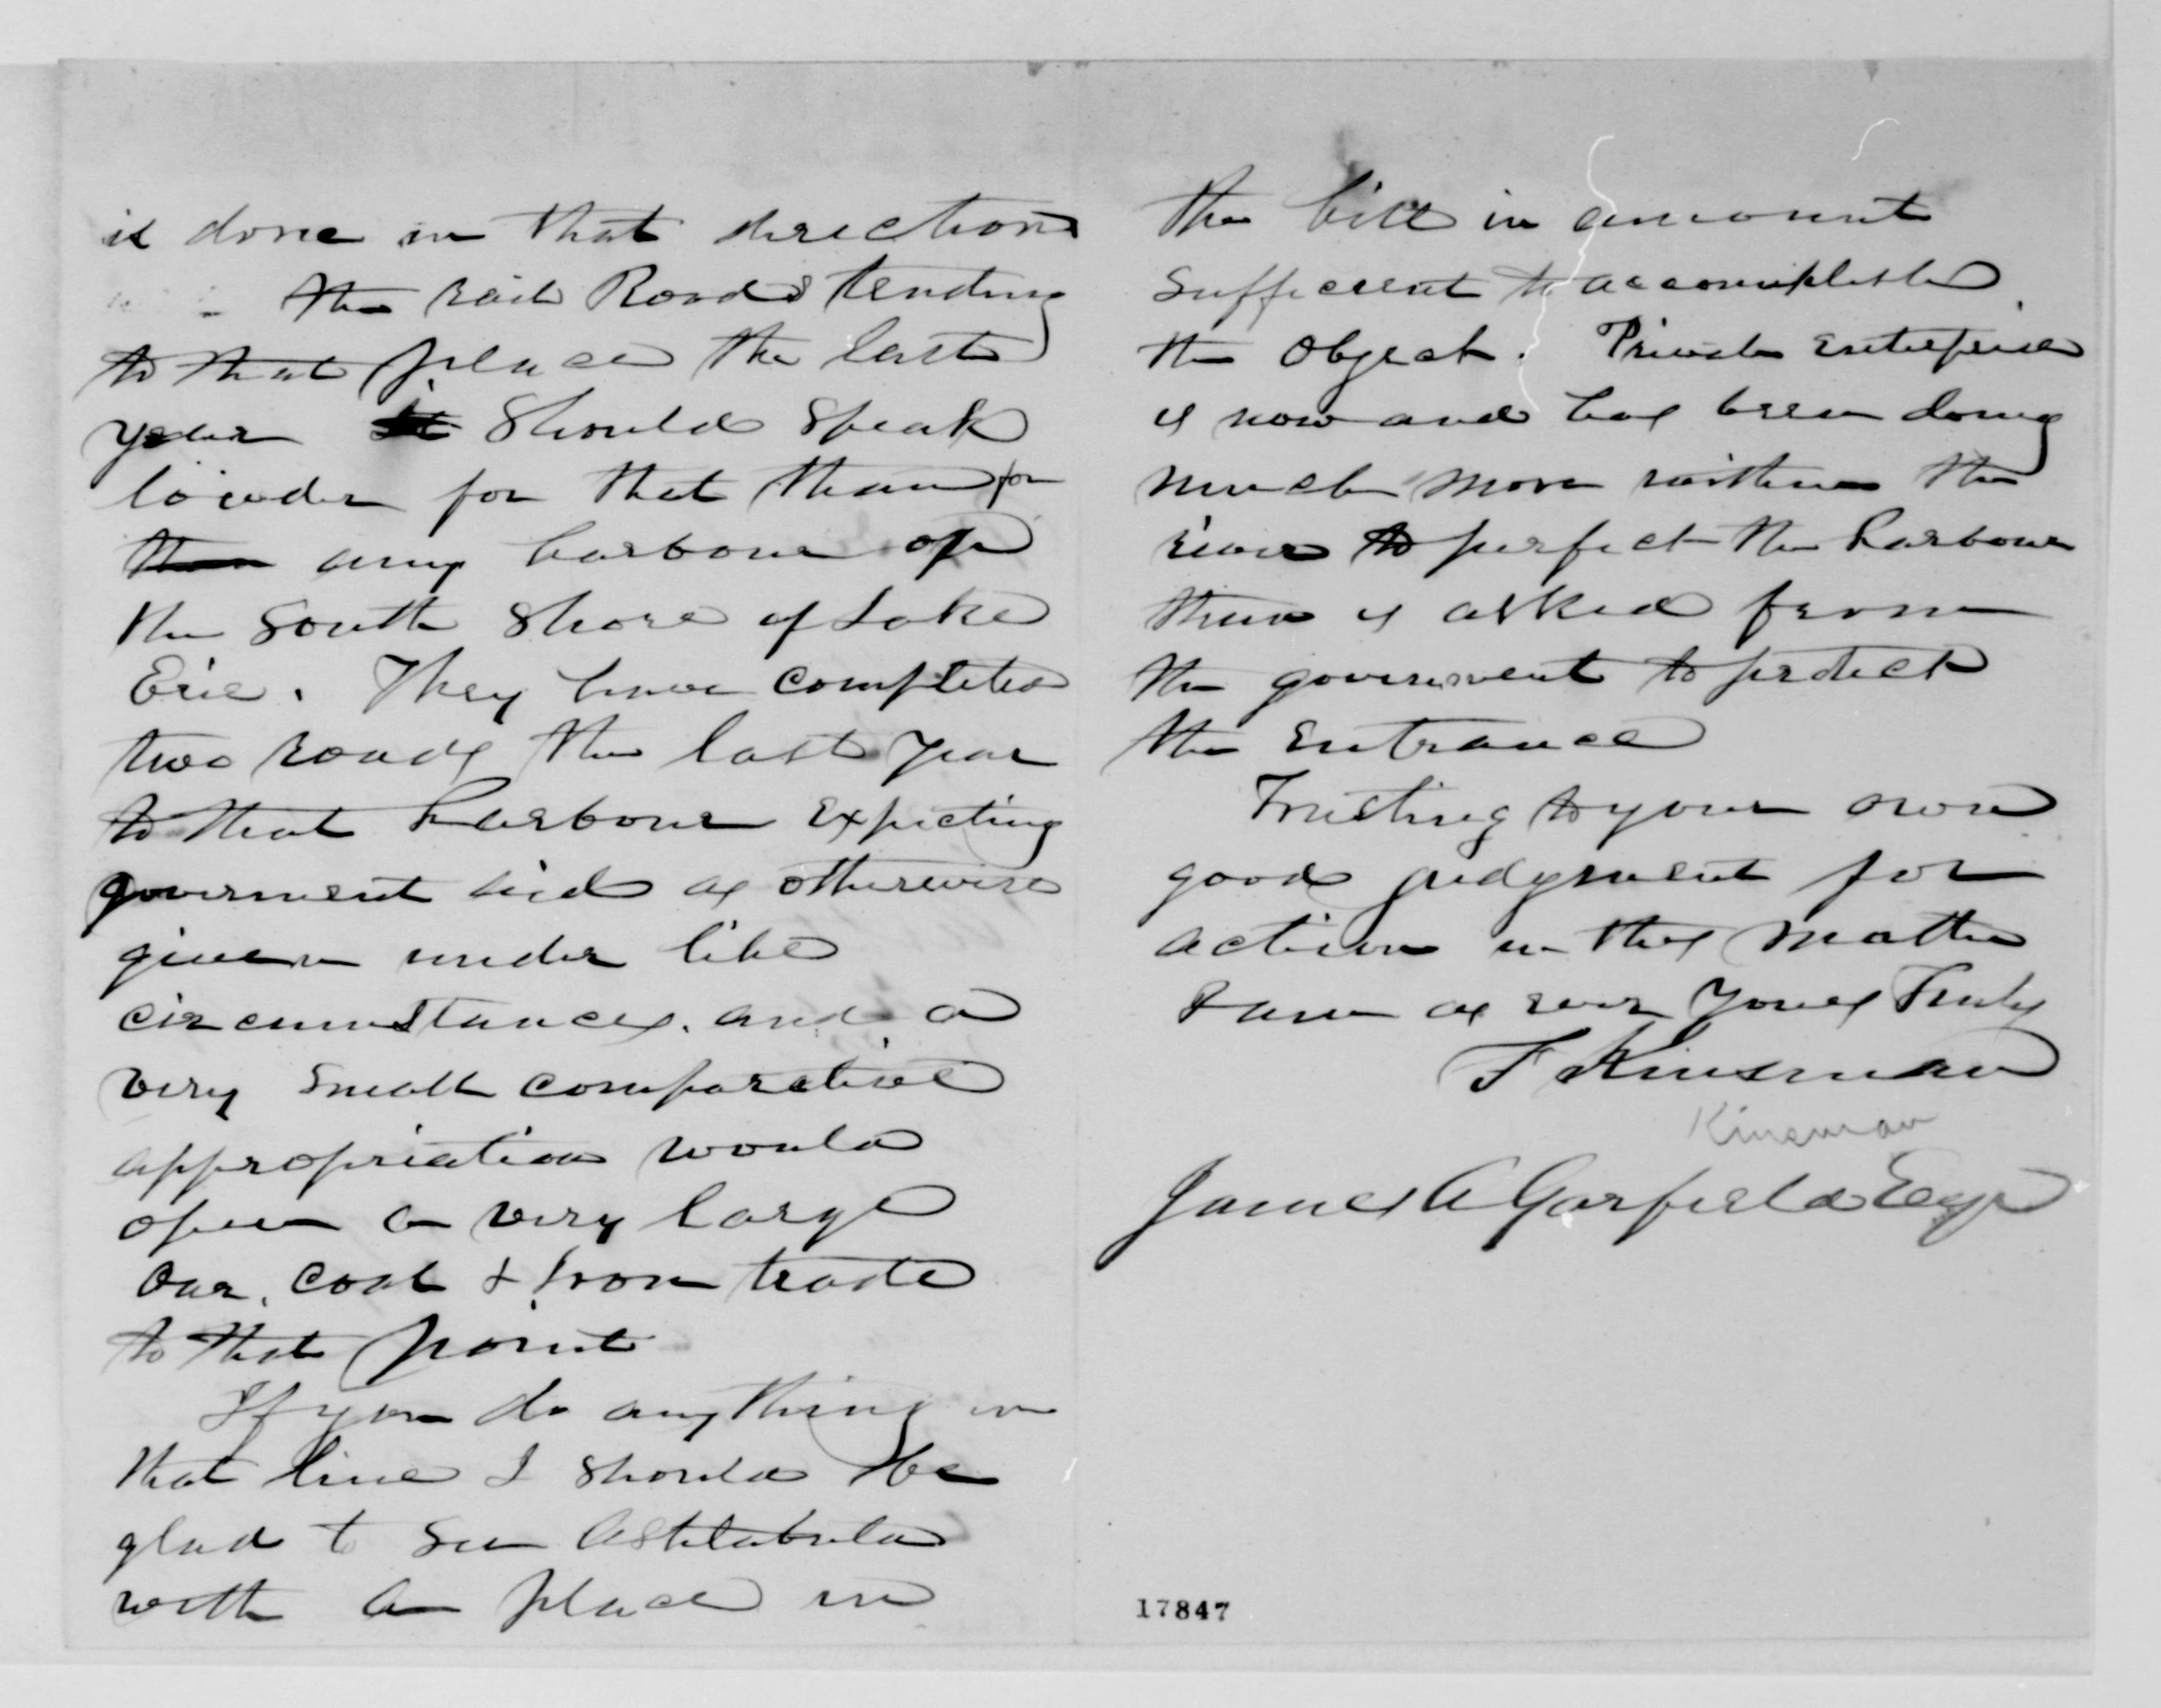 is done in that direction
the rail Roads tending
to that place the last
year it should speak
louder for that than for
than any harbour of
the South Shore of Lake
Erie. They have completed
two roads the last year
to that harbour expecting
government aid as otherwise
given under like
circumstances. and a
very small comparative
appropriation would
open a very large
Oar, Coal & Iron trade
to that point
If you do anything in
that line I should be
glad to see Ashtabula
with a place in
the bill in amount
sufficient to accomplish
the Object. Private enterprise
is now and has been doing
much more within the
river to perfect the harbour
than is asked from
the government to protect
the entrance
Trusting to your own
good judgment for
action in this matter
I am as ever Yours Truly
F Kinsman
Kinsman
James A Garfield Esqr
17847